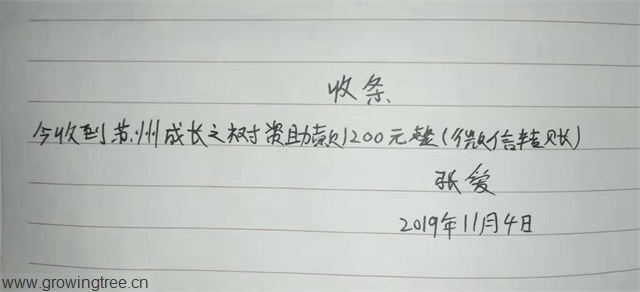 收条
今收到苏州成长之树资助款1200元整(微信转账)
张爱
2019年11月4日
www.growingtree.cn